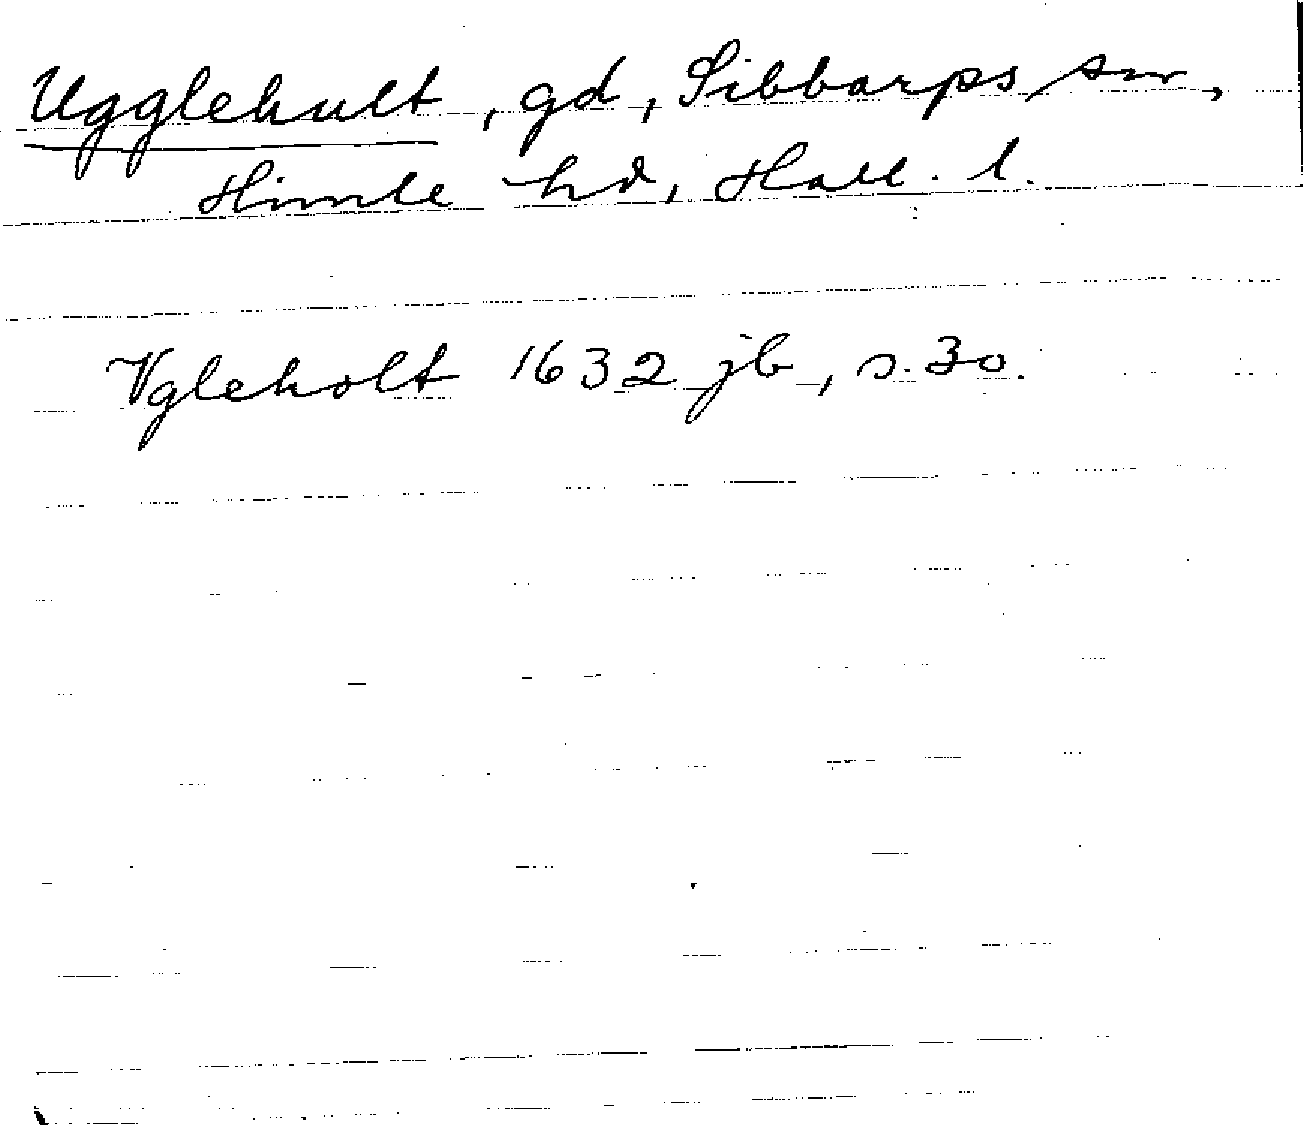 Ugglehult, gd, Sibbarps sn,
Himle hd, Hall. l.
Vgleholt 1632 jb, s. 30.